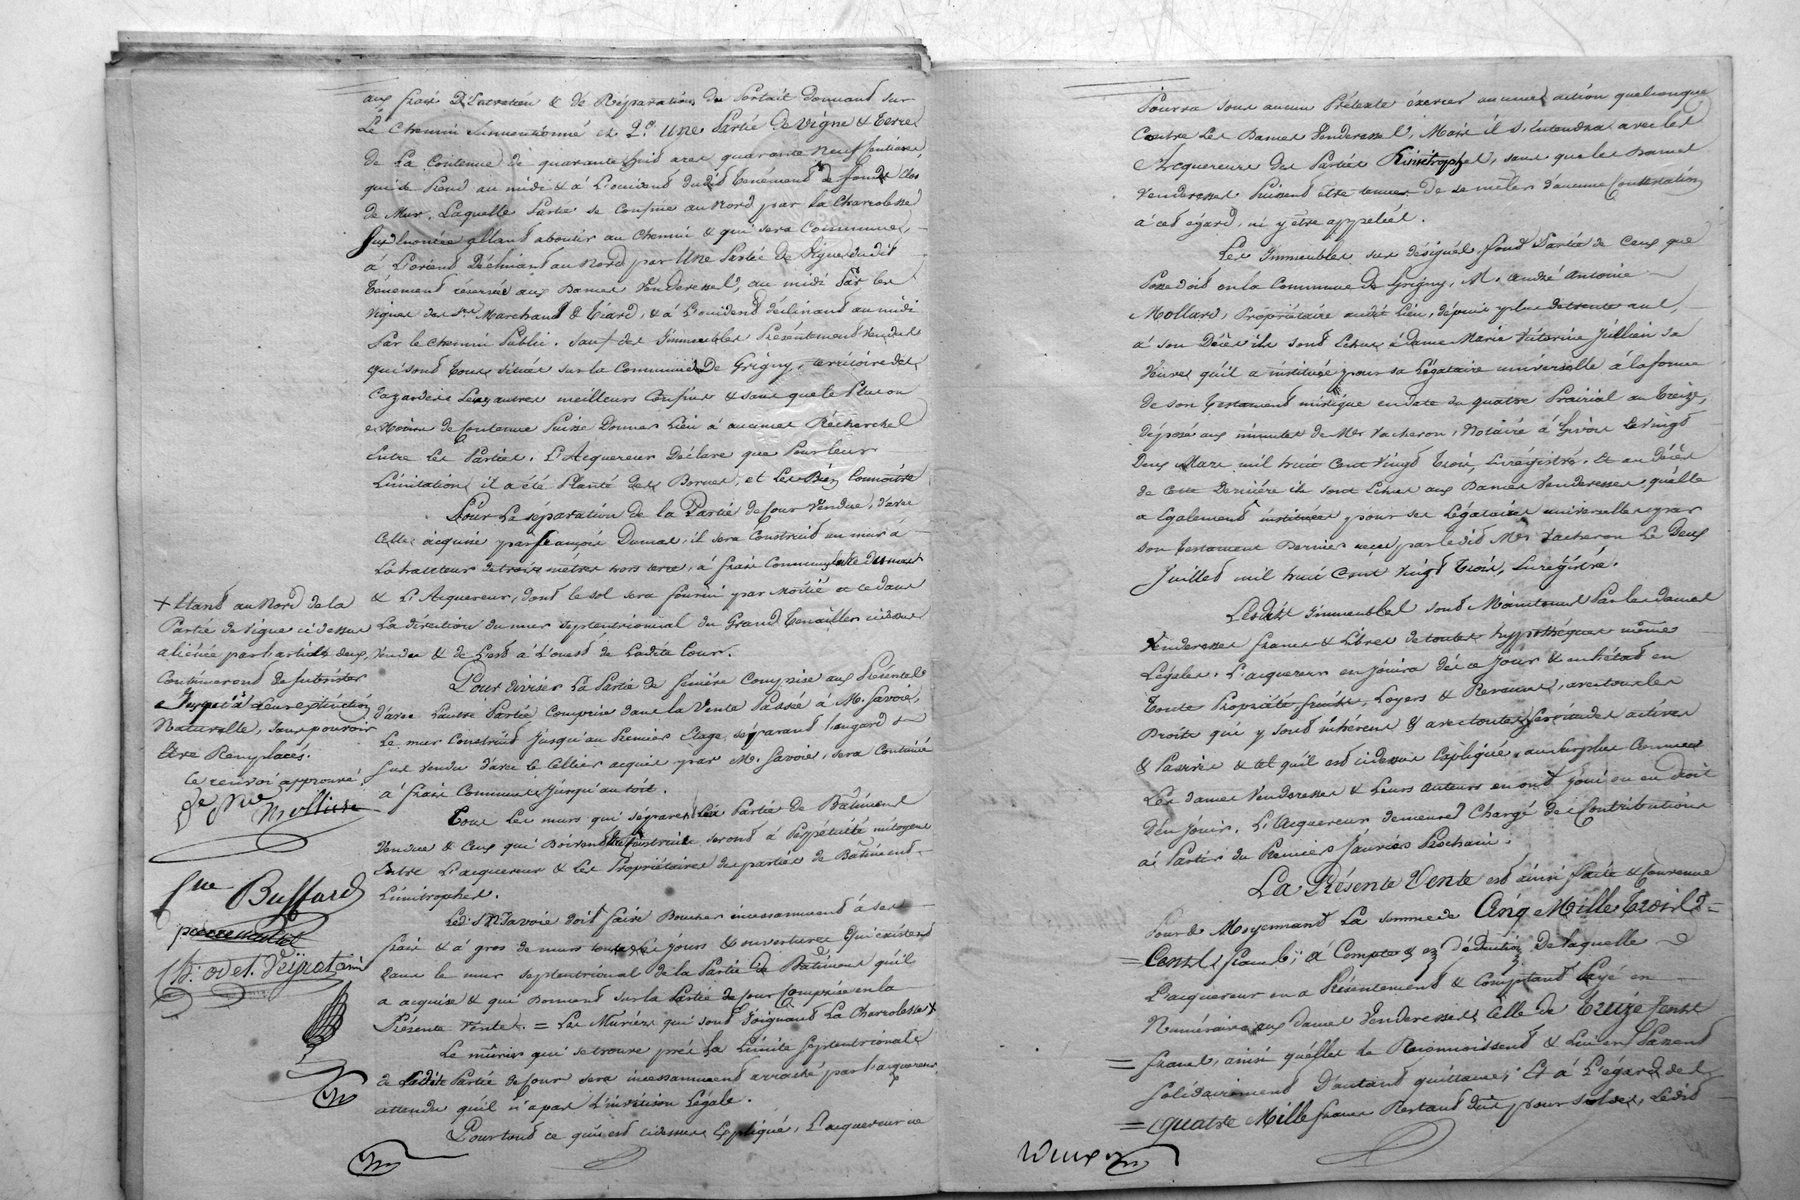 aux frais d'Entretien & de Réparation du Portail donnant sur
Le Chemin susmentionné et 2.º Une Partie de Vigne & Terre
de La Contenue de quarante huit ares quarante neuf centiares,
qui se Prend au midi & à L'occident dudit Tenement de fonds clos
de Mur. Laquelle Partie se Confine au Nord par la Charrolesse
susénoncée allant aboutir au Chemin & qui sera Commune,
à L'orient Déclinant au Nord par Une Partie de Vigne dudit
Tenement réservée aux Dames Venderesses, au midi Par les
Vignes des Srs Marchand & Ciard, & à L'occident déclinant au midi
Par le Chemin Public. Sauf des Immeubles Présentement Vendus
qui sont Tous situés sur la Commune De Grigny, territoire des
Cazardes Leurs autres meilleurs Confins & sans que le Plus ou
Moins de Contenue Puisse Donner Lieu à aucunes Recherches
Entre Les Parties. L'Acquereur Déclare que Pour leur
Limitation il a été Planté des Bornes, et Les Bien Connoitre
Pour La séparation de la Partie de Cour Vendue, d'avec
Celle acquise par François Dumas, il sera Construit un mur à
La hauteur de trois mètres hors terre, à frais Communs entre Dumas
& L'Acquereur, dont le sol sera fourni par Moitié et ce dans
La direction du mur septentrional du Grand Tenailler cidessus
Vendu & de L'est à L'ouest de Ladite Cour.
Pour diviser La Partie de fenière Comprise aux Présentes
d'avec L'autre Partie Comprise dans la Vente Passée à M. Savoie,
Le mur Construit Jusqu'au Premier Etage séparant hangard
sus vendu d'avec le Cellier acquis par M. Savoie, sera Continué
à frais Communs jusqu'au toit.
Tous Les murs qui séparent Les Partie de Bâtiment
Vendue & Ceux qui Doivent être Construits seront à Perpétuité mitoyens
Entre L'acquereur & Les Propriétaires des parties de Bâtiment
Limitrophes.
Led. S.r Savoie doit faire Boucher incessamment à ses
frais & à gros de murs toutes Les jours & ouvertures Qui existent
Dans le mur septentrional de la Partie de Bâtiment qu'il
a acquise & qui Donnent sur la Partie de Cour Comprise en la
Présente Vente. = Les Muriers qui sont Joignant La Charrolesse +
Le mûrier qui se trouve près La Limite septentrionale
de Ladite Partie de Cour sera incessamment arraché par l'acquereur
attendu qu'il n'a pas L'invetison Légale.
Pour tout ce qui est cidessus Expliqué, L'acquereur ne
+ Etant au Nord de la
Partie de Vigne cidessus
aliénée par l'article deux,
Continueront de subsister
Jusqu'à Leur extinction
Naturelle, sans pouvoir
Etre Remplacés.
Ce renvoi approuvé
Mollière
fne Buffard
Pourra sous aucun Prétexte exercer aucunes action quelconque
Contre Les Dames Venderesses, Mais il s'entendra avec Les
Acquereurs des Parties Limitrophes, sans que les Dames
Venderesses Puissent être tenues De se mêler d'aucune Contestation
à cet égard, ni y être appelées.
Les Immeubles sus désignés font Partie de Ceux que
Possedoit en la Commune de Grigny, M. André Antoine
Mollard, Propriétaire audit lieu, depuis plus de trente ans,
à son Décès ils sont Echus à dame Marie Victorine Jullien sa
Veuve qu'il a instituée pour sa Légataire universelle à la forme
De son Testament mistique en date du quatre Prairial an treize,
déposé aux minutes de Me Vacheron, Notaire à Givors Le vingt
Deux Mars mil huit Cent Vingt Trois, Enrégistré. Et au décès
de Cette Dernière ils sont Echus aux Dames Venderesses qu'elle
a Egalement instituées pour ses Légataires universelles par
Son Testament Dernier reçu par ledit Me Vacheron Le Deux
Juillet mil huit Cent Vingt Trois, Enrégistré.
Lesdits Immeubles sont Maintenus Par les dames
Venderesses francs & Libres de toutes hypothéques même
Légales. L'acquereur en jouira dès ce jour & en l'état en
Toute Propriété fruits, Loyers & Revenus, avec tous les
Droits qui y sont inhérens & avec toutes servitudes actives
& Passives & tel qu'il est cidessus Expliqué, au surplus Comme
Les dames Venderesses & Leurs auteurs en ont joui ou eu droit
d'en jouir. L'Acquereur demeure Chargé des Contributions
à Partir du Premier Janvier Prochain.
La Présente Vente est ainsi faite & convenue
Pour & Moyennant La somme de Cinq Mille Trois =
= Cents francs; à Compte & en déduction De laquelle
L'acquereur en a Présentement & Comptant Payé en
Numéraire aux dames Venderesses Celle de Treize Cents
= francs, ainsi qu'elles le Reconnoissent & Lui en Passent
Solidairement D'autant quittance; Et à L'égard des
= Quatre Mille francs Restant dûs pour solde, Ledit